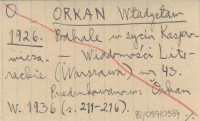 ORKAN Władysław
1926. Podhale w życiu Kaspro-
wicza. Wiadomości Lite-
rackie (Warszawa) nr 43.
Przedrukowano: Orkan
W. 1936 (s. 211-216).